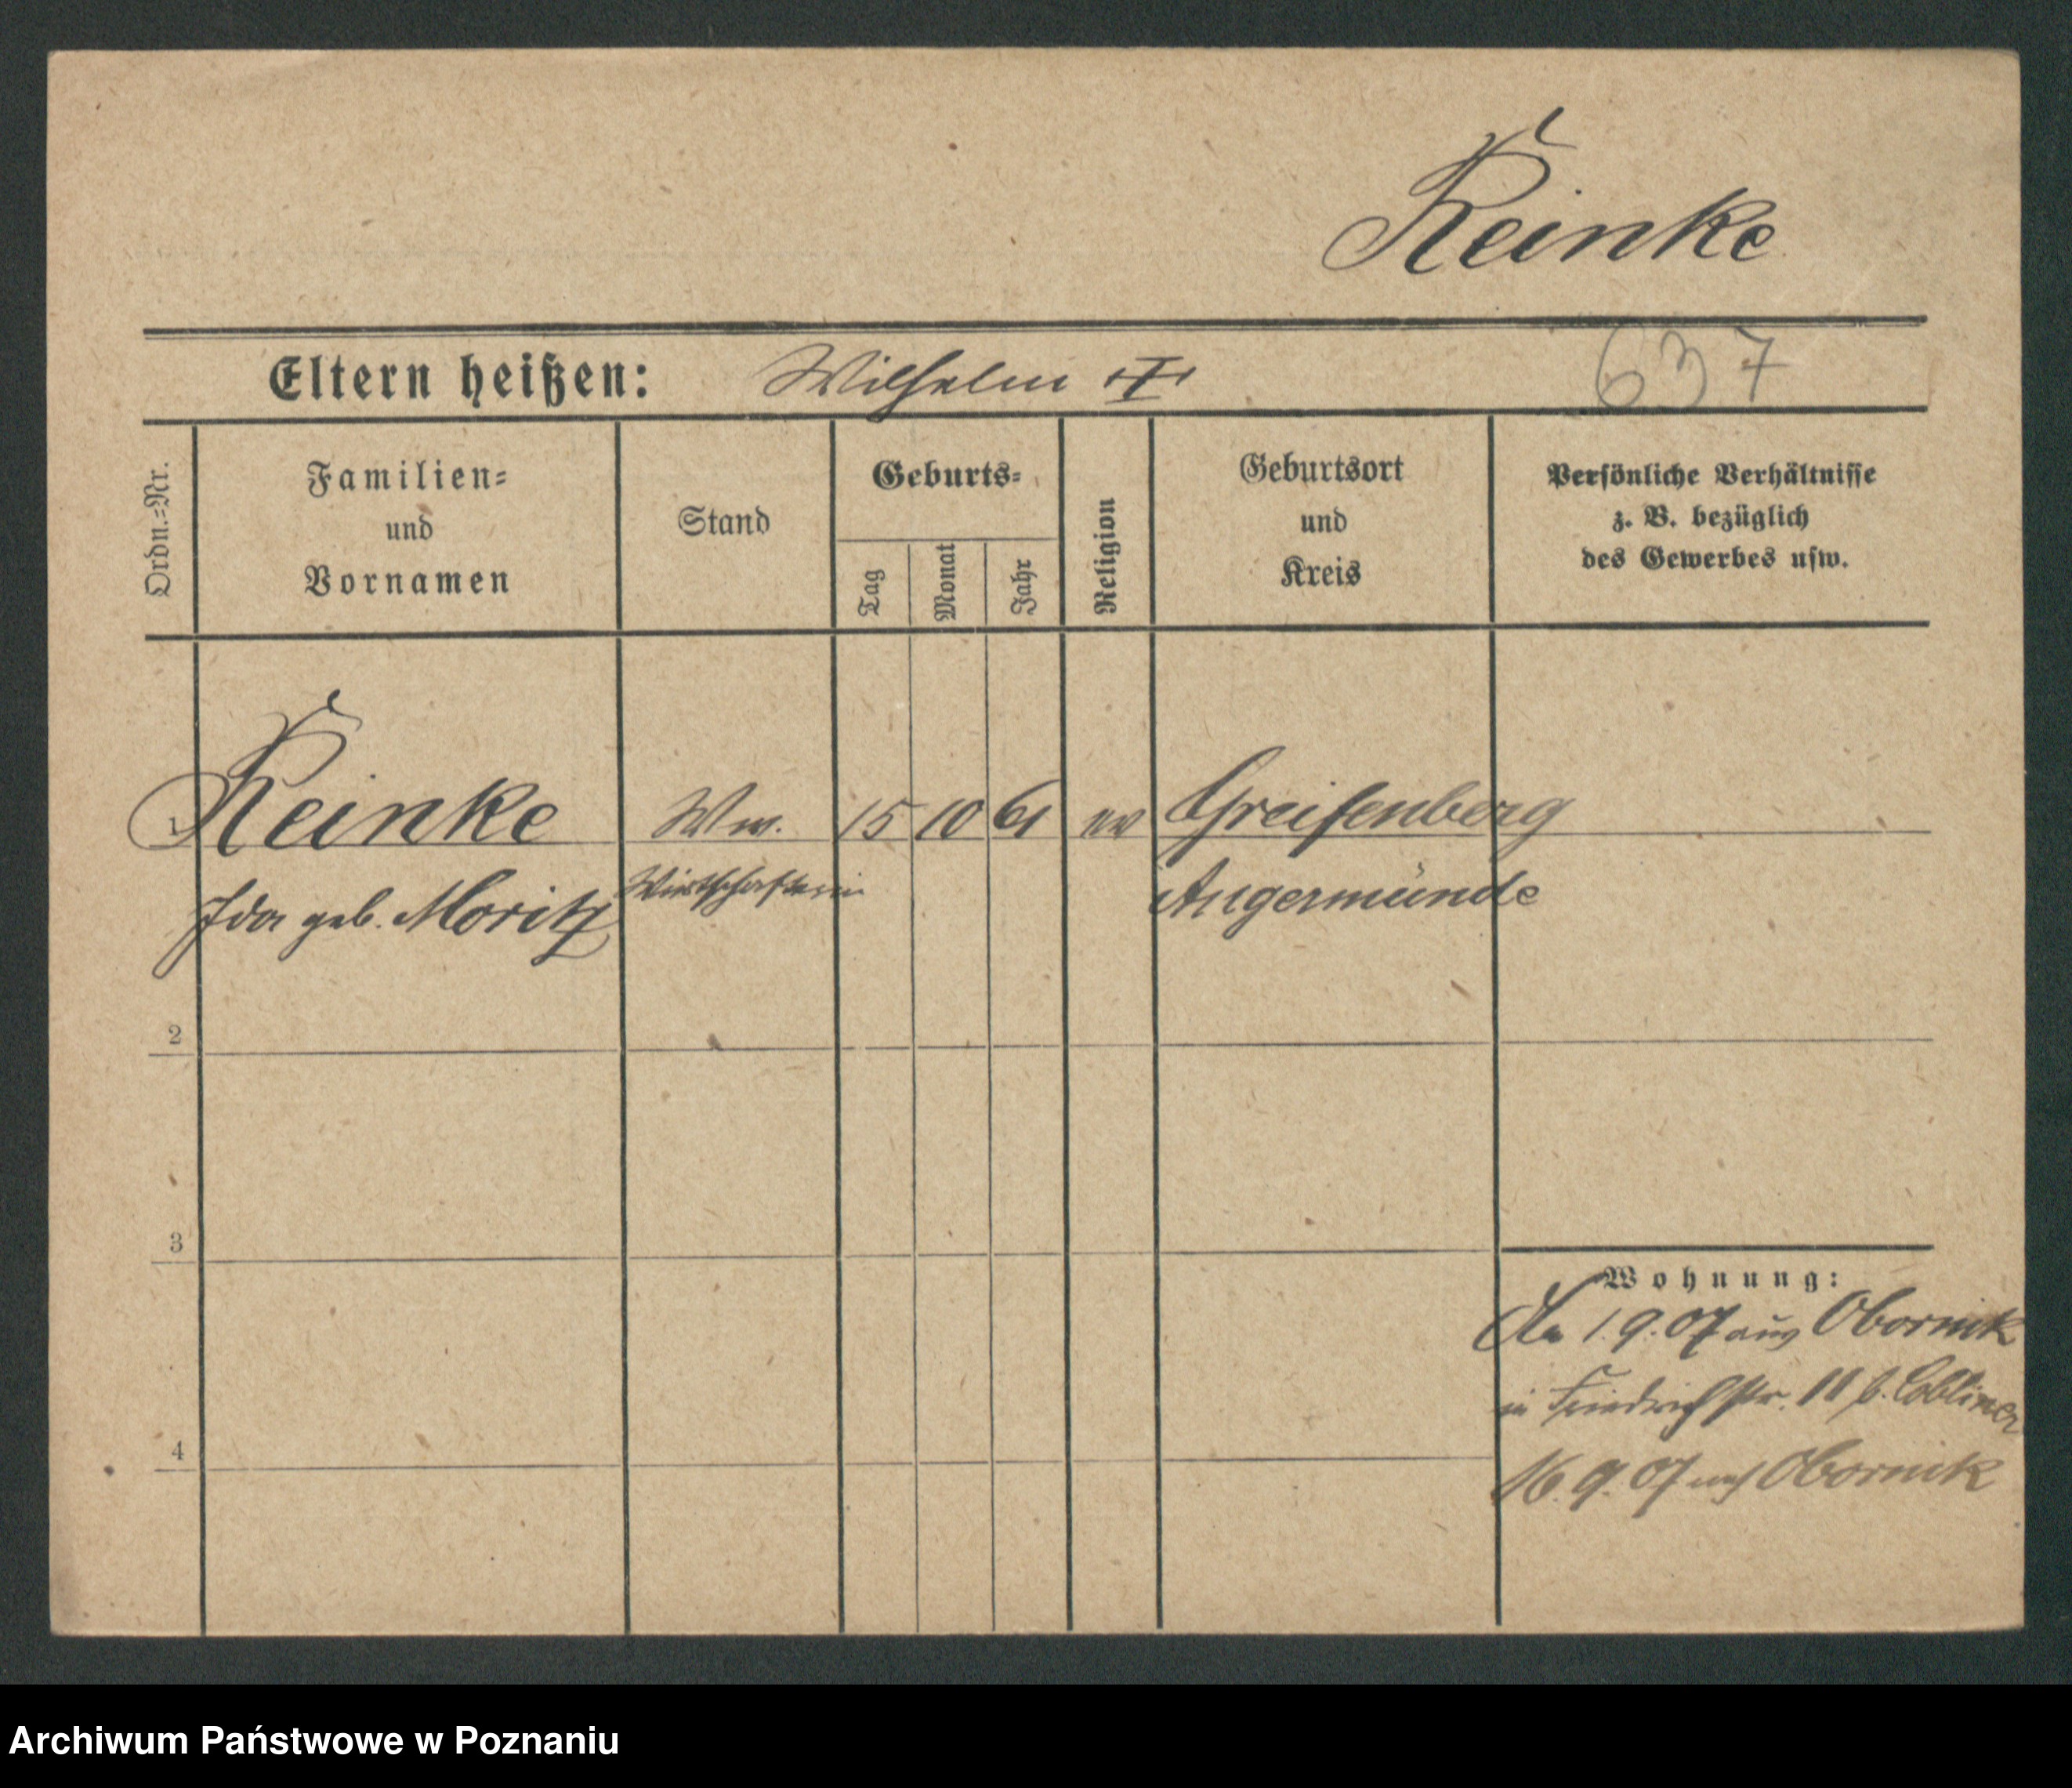 Reinke
Eltern heißen: Wilhelm
637
Ordn.-Nr.
Familien-
und
Vornamen
Stand
Geburts-
Tag
Monat
Jahr
Religion
Geburtsort
und
Kreis
Persönliche Verhältnisse
z. B. bezüglich
des Gewerbes usw.
1 Reinke Ww. 15 10 61 ev Greifenberg
Ida geb. Moritz Wirtschafterin Angermünde
2
3
Wohnung:
1.9.07 aus Obornik
in Friedrichstr. 11 b. Cobliner
4
16.9.07 nach Obornik
Archiwum Państwowe w Poznaniu